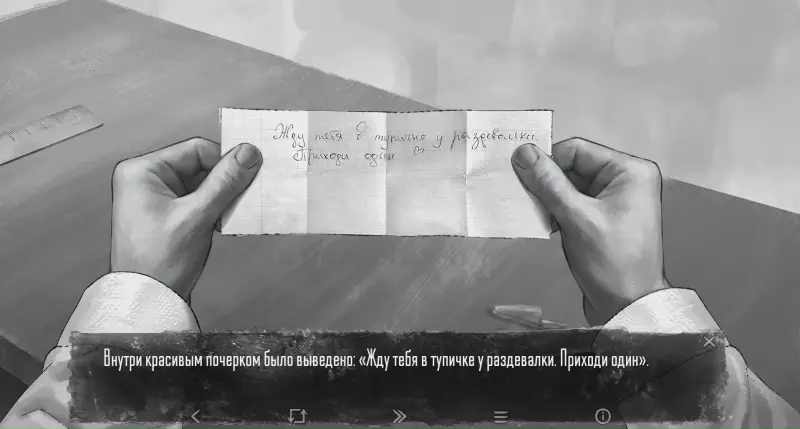 Жду тебя в тупичке у раздевалки.
Приходи один ♡
Внутри красивым почерком было выведено: «Жду тебя в тупичке у раздевалки. Приходи один».